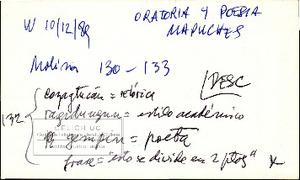 W 10/12/89
ORATORIA Y POESIA
MAPUCHES
Molina 130-133
DESC
132
= retórica
= estilo académico
CELICH UC
gempin = poeta
frase = "esto se divide en 2 ptos"